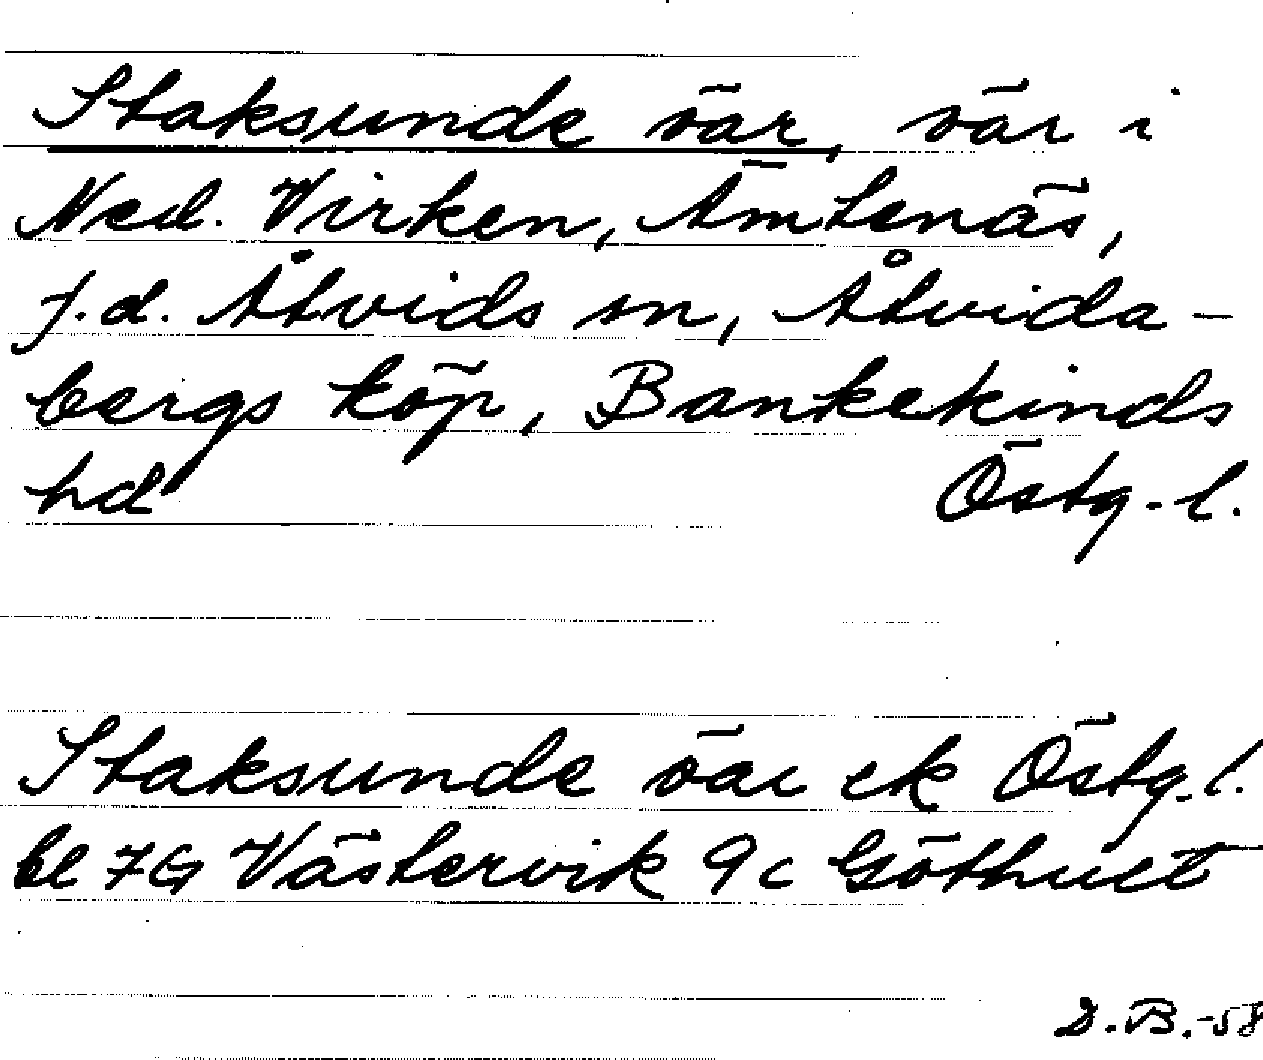 Staksunde öar, öar i
Ned. Virken, Ämtenäs,
f.d. Åtvids sn, Åtvida-
bergs köp, Bankekinds
hd Östg.l.
Staksunde öar ek Östg.l.
bl 7G Västervik 9c Göthult
D.B.-58